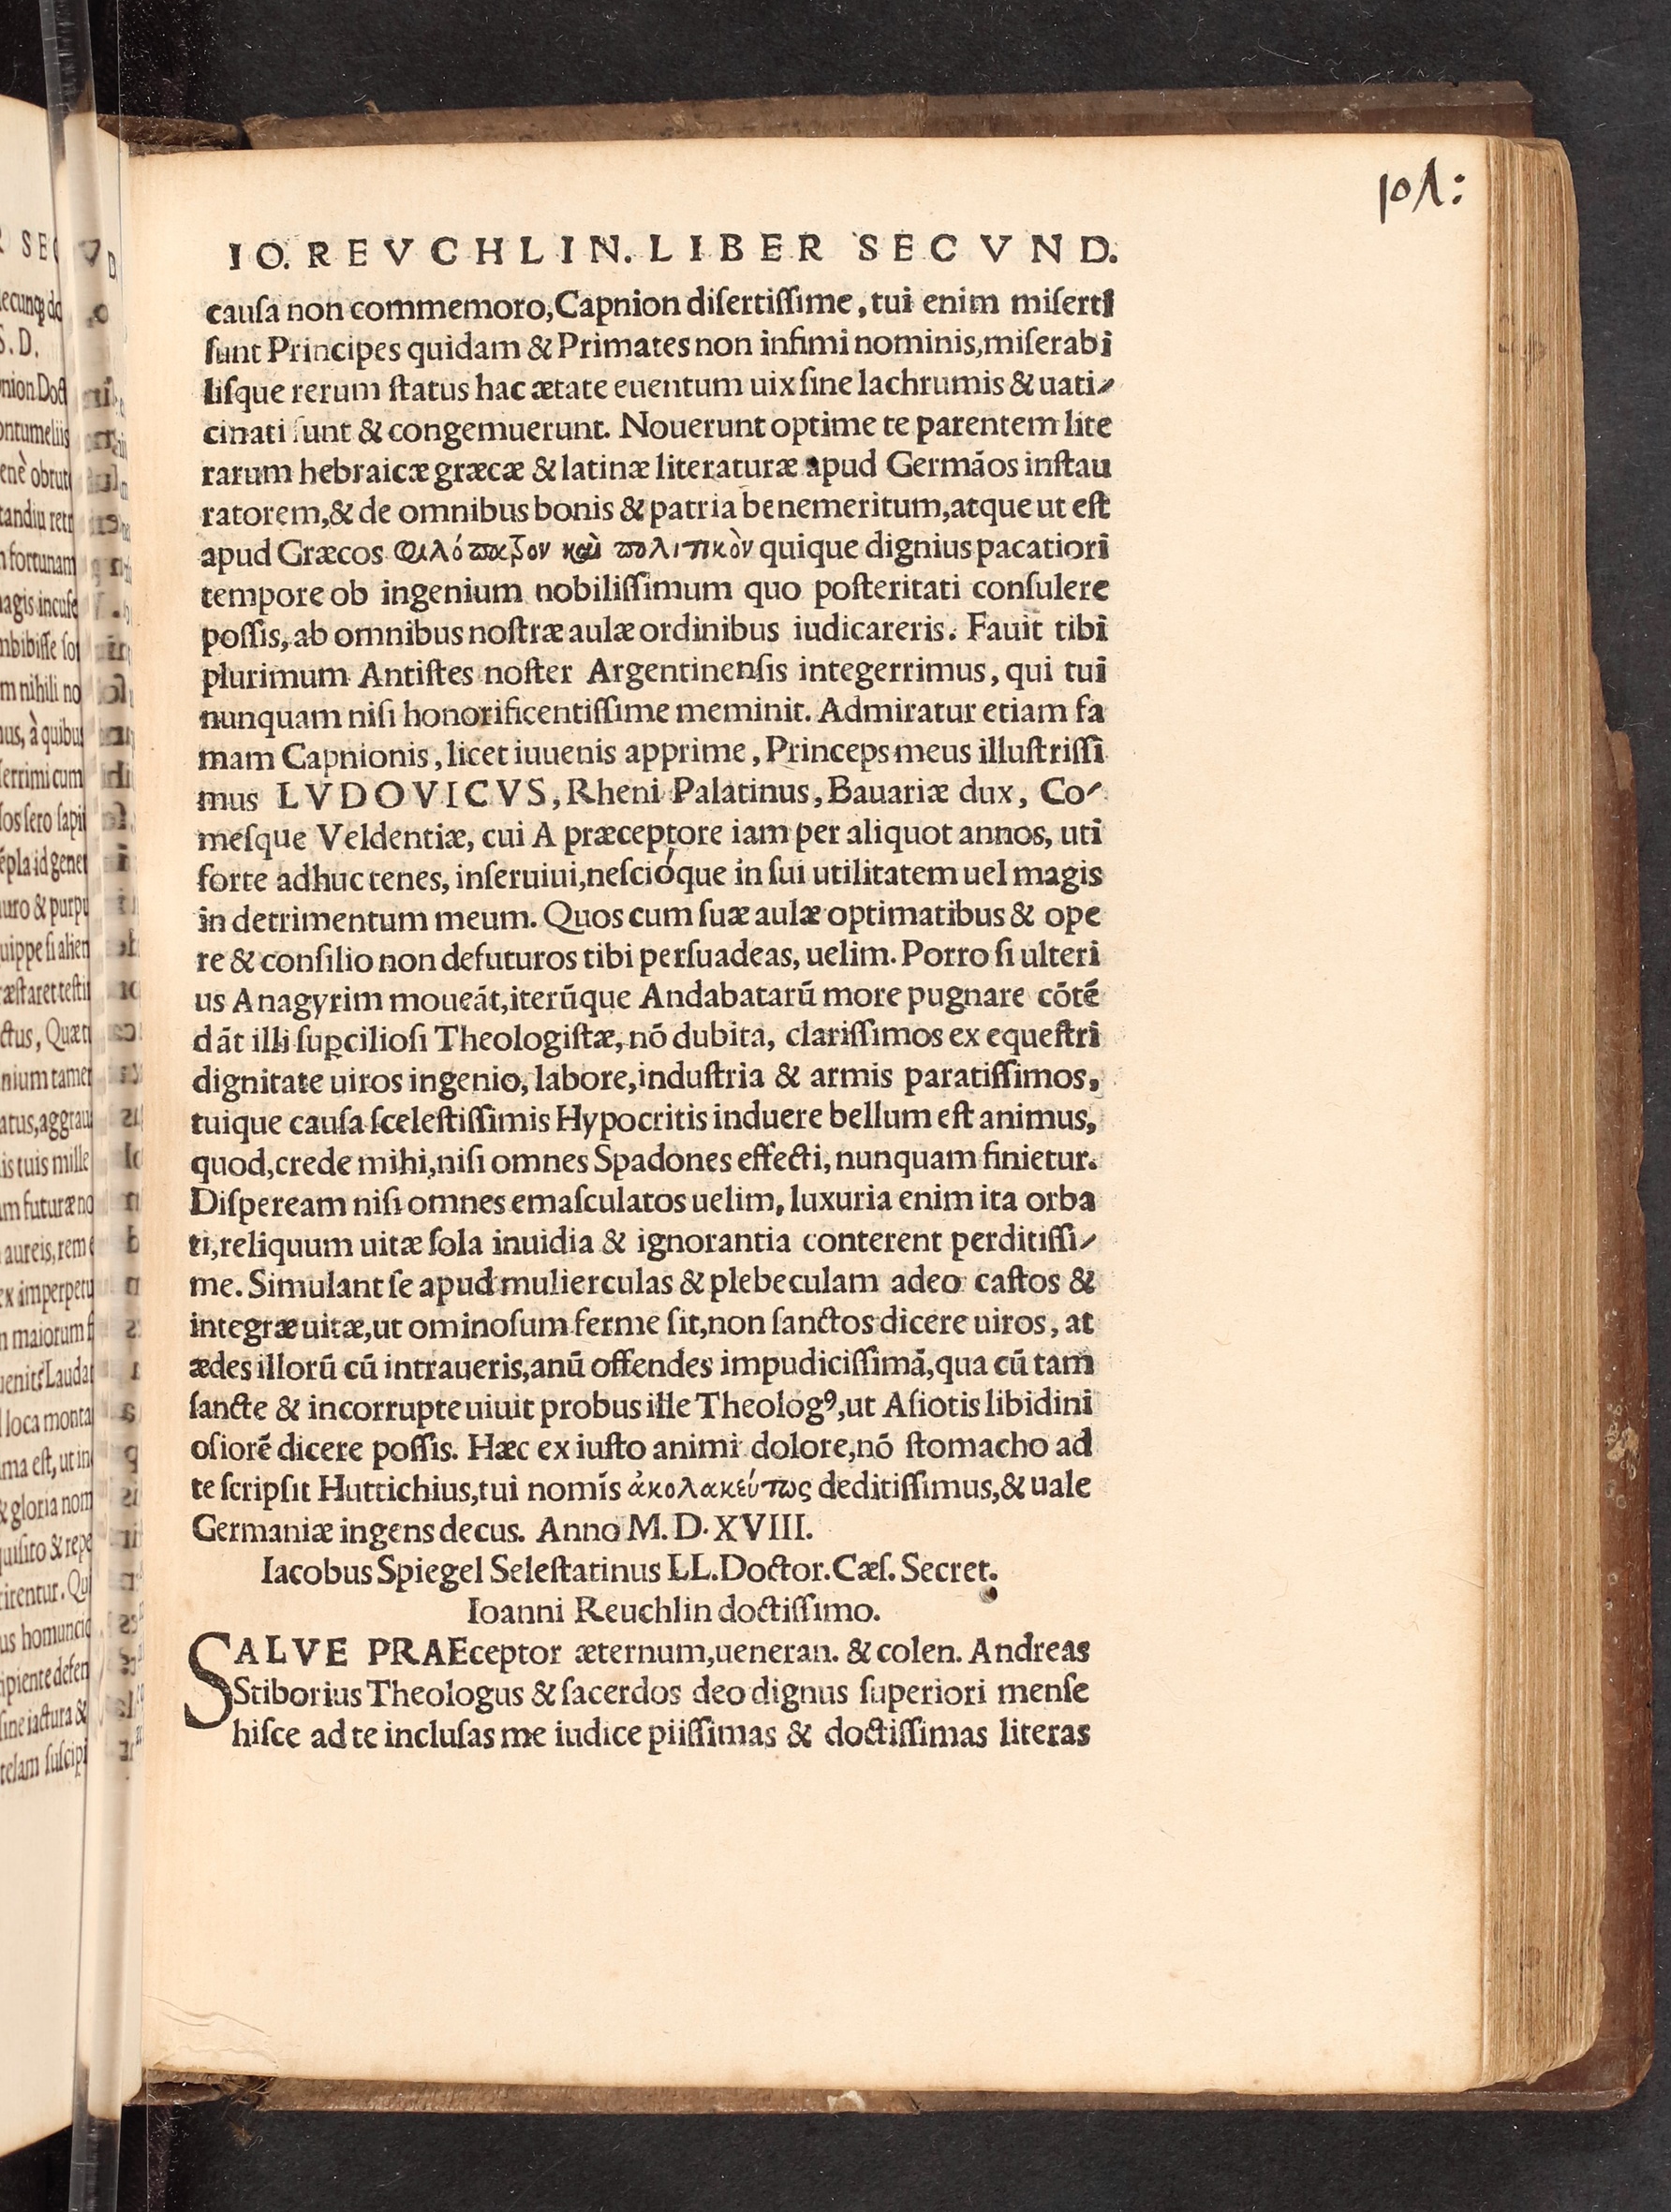 IO. REVCHLIN. LIBER SECVND.
causa non commemoro, Capnion disertissime, tui enim miserti
sunt Principes quidam & Primates non infimi nominis, miserabi
lisque rerum status hac ætate euentum uix sine lachrumis & uati-
cinati sunt & congemuerunt. Nouerunt optime te parentem lite
rarum hebraicæ græcæ & latinæ literaturæ apud Germāos instau
ratorem, & de omnibus bonis & patria benemeritum, atque ut est
apud Græcos καὶ πολιτικὸν quique dignius pacatiori
tempore ob ingenium nobilissimum quo posteritati consulere
possis, ab omnibus nostræ aulæ ordinibus iudicareris. Fauit tibi
plurimum Antistes noster Argentinensis integerrimus, qui tui
nunquam nisi honorificentissime meminit. Admiratur etiam fa
mam Capnionis, licet iuuenis apprime, Princeps meus illustrissi
mus LVDOVICVS, Rheni Palatinus, Bauariæ dux, Co-
mesque Veldentiæ, cui A præceptore iam per aliquot annos, uti
forte adhuc tenes, inseruiui, nescióque in sui utilitatem uel magis
in detrimentum meum. Quos cum suæ aulæ optimatibus & ope
re & consilio non defuturos tibi persuadeas, uelim. Porro si ulteri
us Anagyrim moueāt, iterūque Andabatarū more pugnare cōtē
dāt illi suꝑciliosi Theologistæ, nō dubita, clarissimos ex equestri
dignitate uiros ingenio, labore, industria & armis paratissimos,
tuique causa scelestissimis Hypocritis induere bellum est animus,
quod, crede mihi, nisi omnes Spadones effecti, nunquam finietur.
Dispeream nisi omnes emasculatos uelim, luxuria enim ita orba
ti, reliquum uitæ sola inuidia & ignorantia conterent perditissi-
me. Simulant se apud mulierculas & plebeculam adeo castos &
integræ uitæ, ut ominosum ferme sit, non sanctos dicere uiros, at
ædes illorū cū intraueris, anū offendes impudicissimā, qua cū tam
sancte & incorrupte uiuit probus ille Theologꝰ, ut Asiotis libidini
osiorē dicere possis. Hæc ex iusto animi dolore, nō stomacho ad
te scripsit Huttichius, tui nomīs ἀκολακεύτως deditissimus, & uale
Germaniæ ingens decus. Anno M. D. XVIII.
Iacobus Spiegel Selestatinus LL. Doctor. Cæs. Secret.
Ioanni Reuchlin doctissimo.
SALVE PRAEceptor æternum, ueneran. & colen. Andreas
Stiborius Theologus & sacerdos deo dignus superiori mense
hisce ad te inclusas me iudice piissimas & doctissimas literas